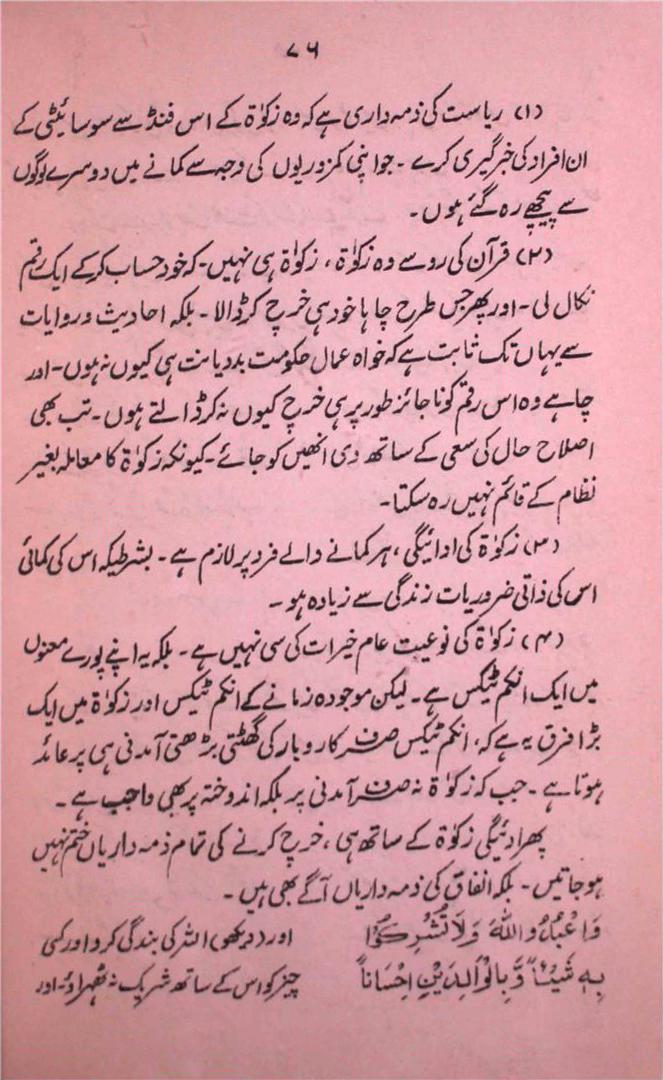 ۷۶
(۱) ریاست کی ذمہ داری ہے کہ وہ زکوٰۃ کے اس فنڈ سے سوسائیٹی کے
ان افراد کی خبر گیری کرے ۔ جو اپنی کمزوریوں کی وجہ سے کمانے میں دوسرے لوگوں
سے پیچھے رہ گئے ہوں ۔
(۲) قرآن کی رو سے وہ زکوٰۃ ، زکوٰۃ ہی نہیں ۔ کہ خود حساب کر کے ایک رقم
نکال لی ۔ اور پھر جس طرح چاہا خود ہی خرچ کر ڈالا ۔ بلکہ احادیث و روایات
سے یہاں تک ثابت ہے کہ خواہ عمال حکومت بددیانت ہی کیوں نہ ہوں ۔ اور
چاہے وہ اس رقم کو ناجائز طور پر ہی خرچ کیوں نہ کر ڈالتے ہوں ۔ تب بھی
اصلاح حال کی سعی کے ساتھ دی انھیں کو جائے ۔ کیونکہ زکوٰۃ کا معاملہ بغیر
نظام کے قائم نہیں رہ سکتا ۔
(۳) زکوٰۃ کی ادائیگی ، ہر کمانے والے فرد پر لازم ہے ۔ بشرطیکہ اس کی کمائی
اس کی ذاتی ضروریات زندگی سے زیادہ ہو ۔
(۴) زکوٰۃ کی نوعیت عام خیرات کی سی نہیں ہے ۔ بلکہ یہ اپنے پورے معنوں
میں ایک انکم ٹیکس ہے ۔ لیکن موجودہ زمانے کے انکم ٹیکس اور زکوٰۃ میں ایک
بڑا فرق یہ ہے کہ ، انکم ٹیکس صرف کاروبار کی گھٹتی بڑھتی آمدنی ہی پر عائد
ہوتا ہے ۔ جب کہ زکوٰۃ نہ صرف آمدنی پر بلکہ اندوختہ پر بھی واجب ہے ۔
پھر ادئیگی زکوٰۃ کے ساتھ ہی ، خرچ کرنے کی تمام ذمہ داریاں ختم نہیں
ہو جاتیں ۔ بلکہ انفاق کی ذمہ داریاں آگے بھی ہیں ۔
وَاعْبُدُوا اللهَ وَلَا تُشْرِكُوْا اور (دیکھو) اللہ کی بندگی کرو اور کسی
بِهٖ شَيْئًا وَّبِالْوَالِدَيْنِ اِحْسَانًا چیز کو اس کے ساتھ شریک نہ ٹھہراؤ ۔ اور